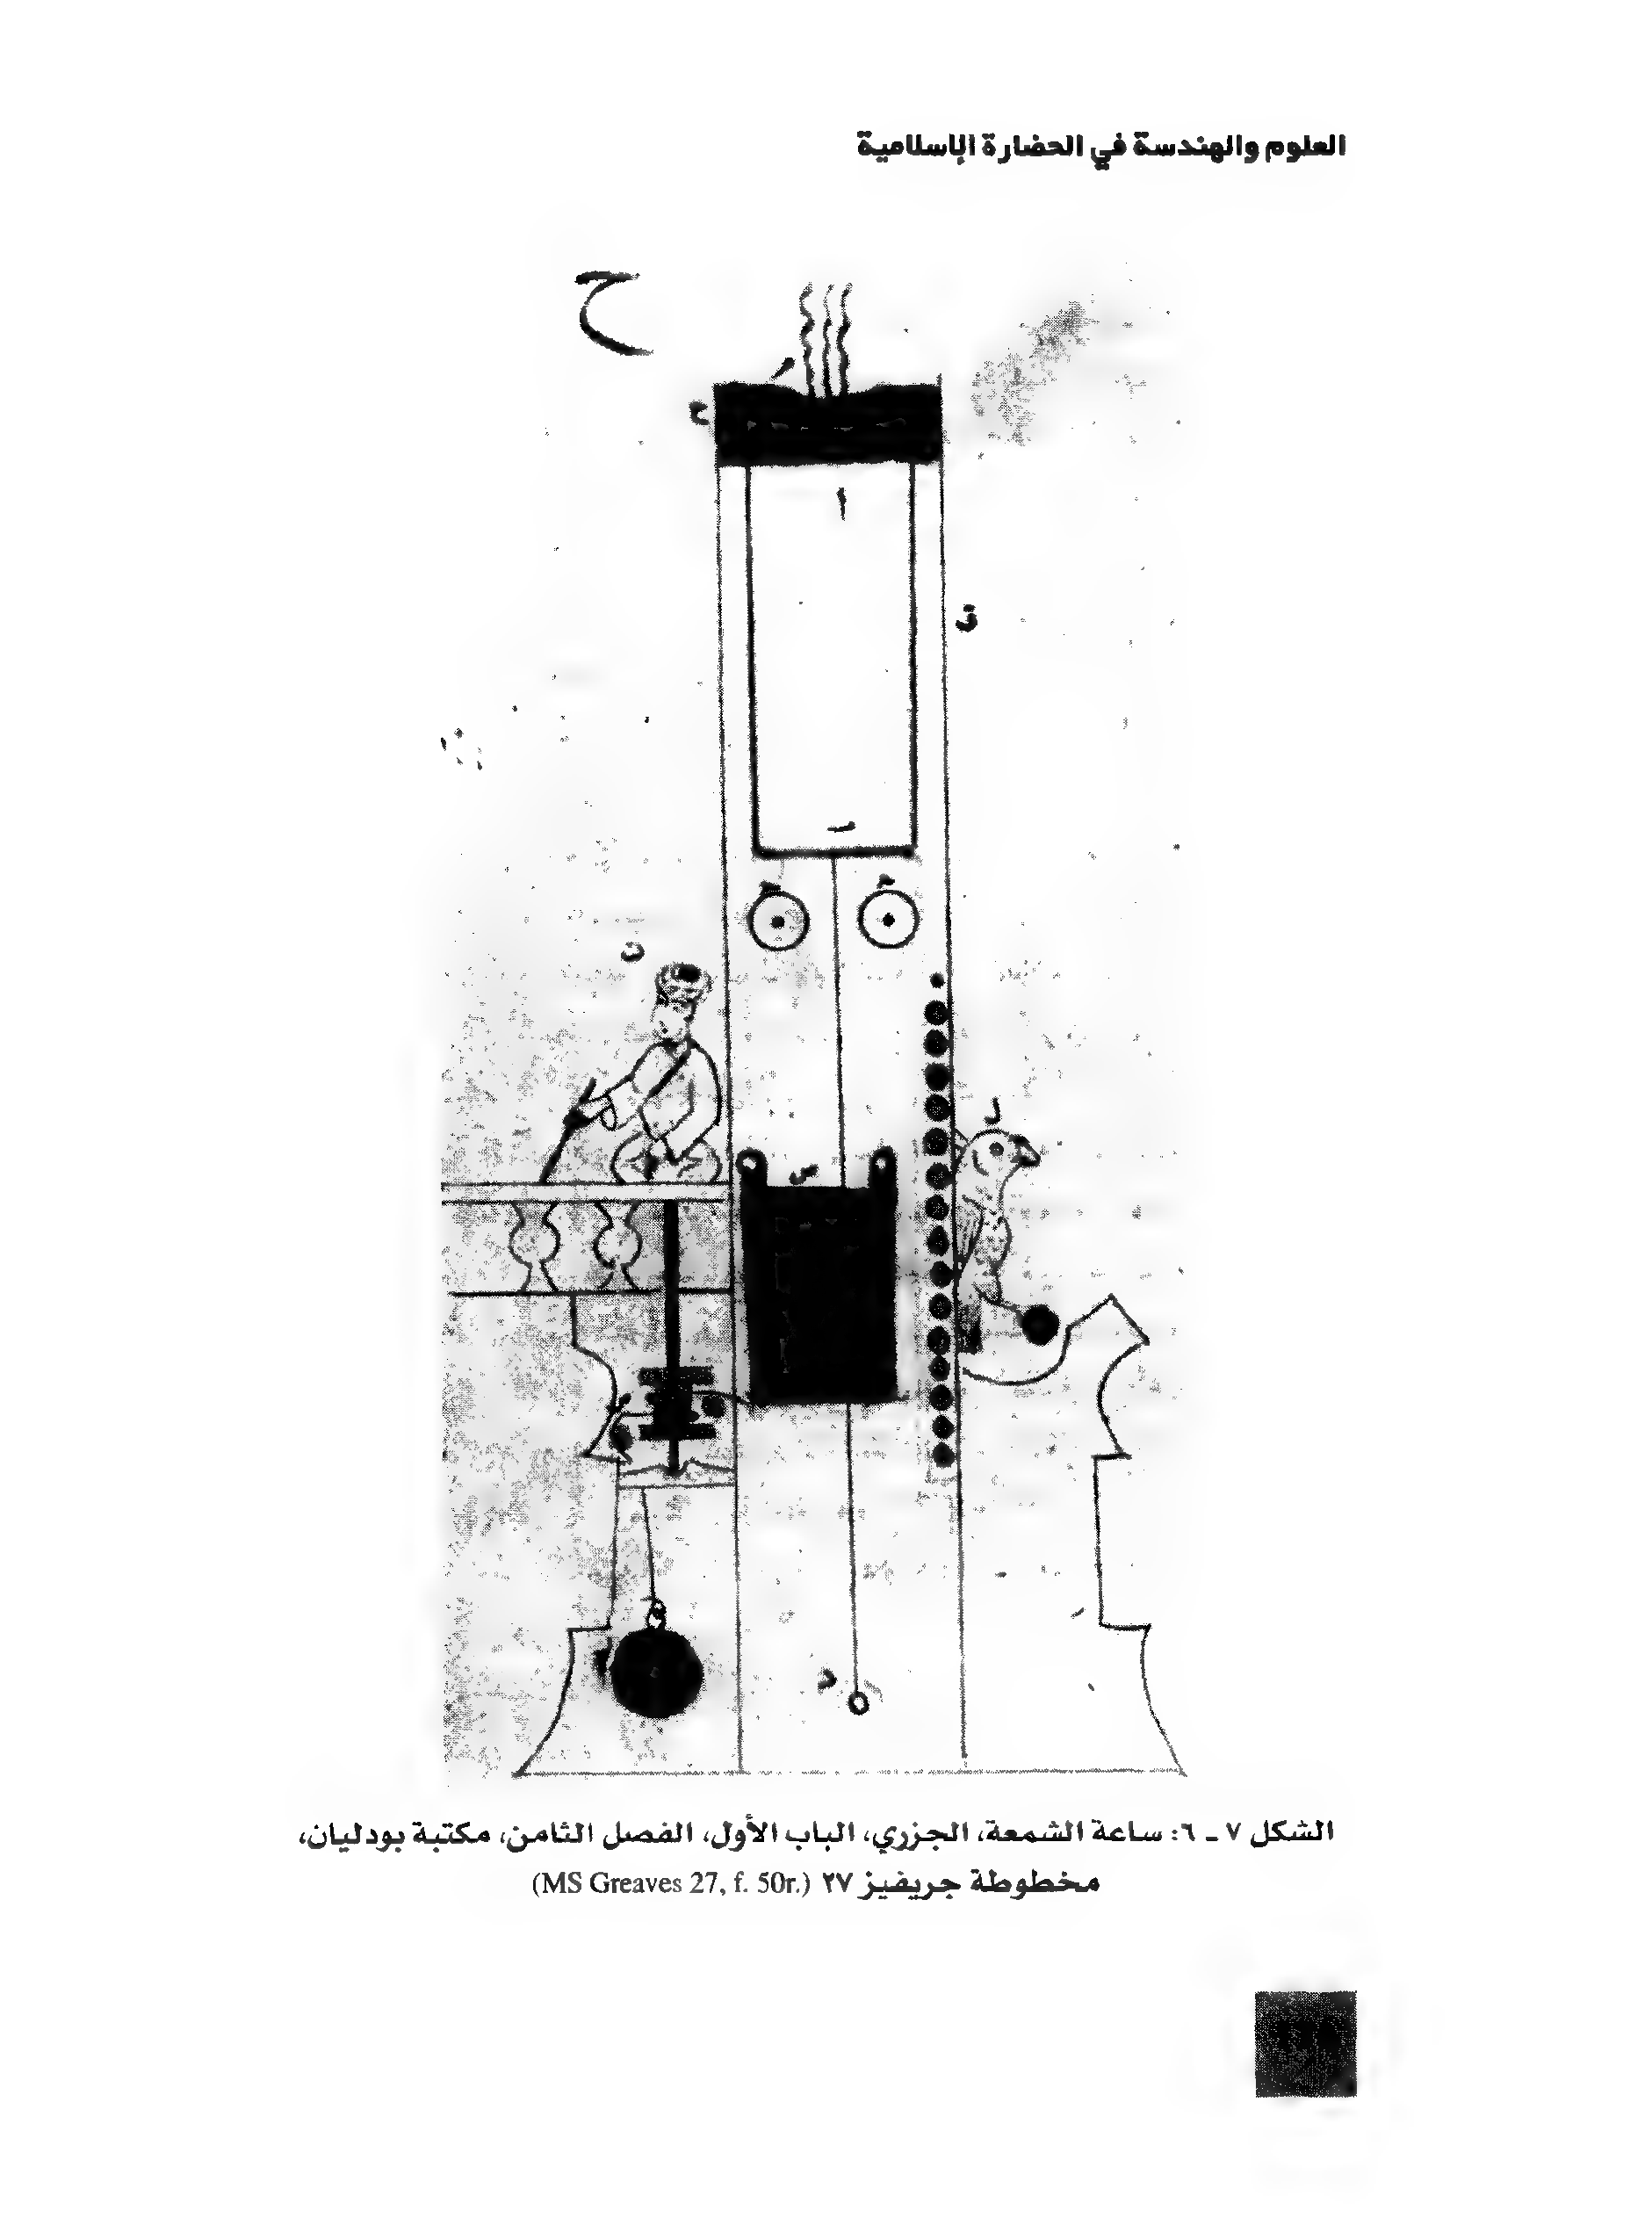 العلوم والهندسة في الحضارة الإسلامية
ح
ح
ا
ق
ب
ت
ر
ص
د
الشكل ٧ ـ ٦: ساعة الشمعة، الجزري، الباب الأول، الفصل الثامن، مكتبة بودليان،
مخطوطة جريفيز ٢٧ (MS Greaves 27, f. 50r.)